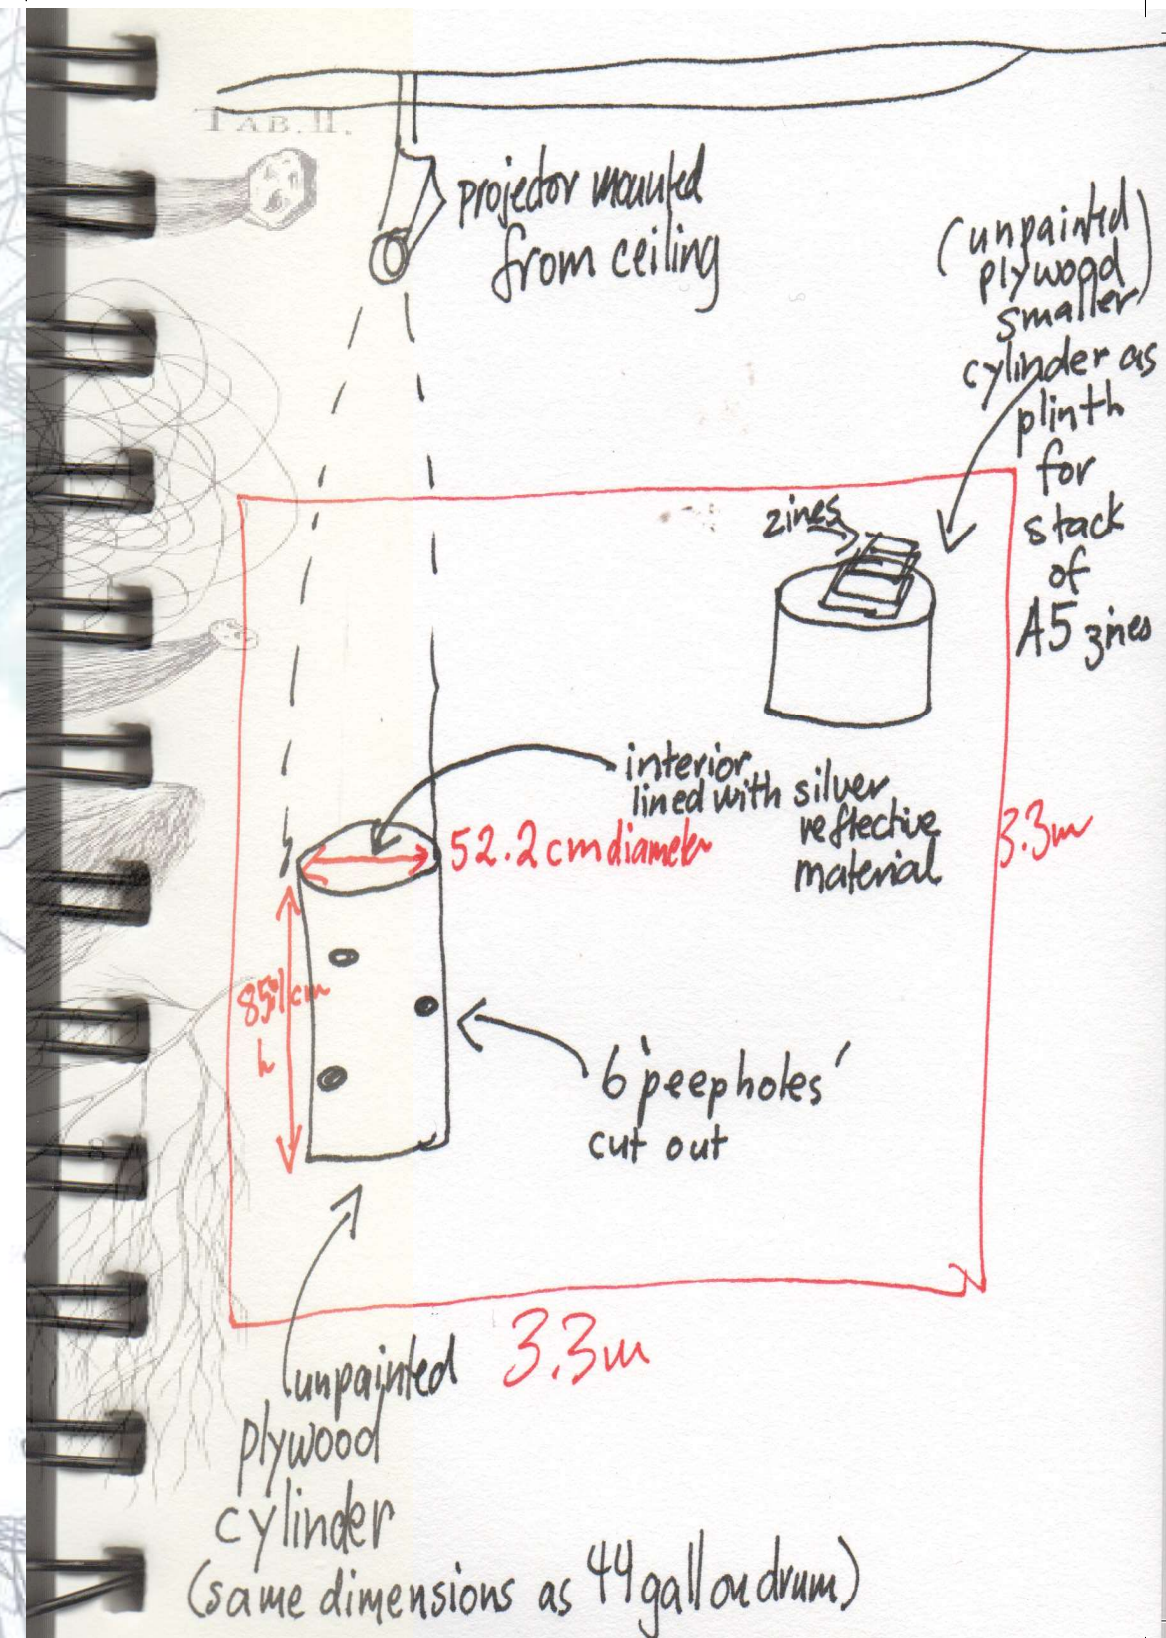 TAB. II.
projector mounted
from ceiling
(unpainted)
plywood
smaller
cylinder as
plinth
for
stack
of
A5 zines
zines
interior
lined with silver
reflective
material
52.2 cm diameter
3.3m
cm
h
6 'peepholes'
cut out
3.3m
unpainted
plywood
cylinder
(same dimensions as 44 gallon drum)